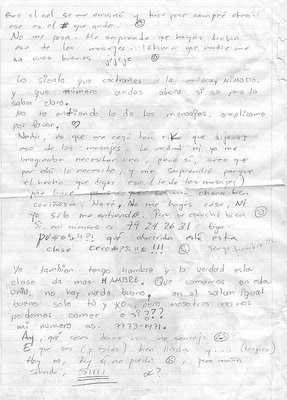 Que el cel se me arruinó y hace poco compré otro.
ese es el # que ando.
No me pasa. Me sorprende que hayas dicho
eso de los mensajes. Lástima que nadie me
da unos buenos jejeje
Lo siento que extrañes a la
y que número andas ahora si se puede
saber claro.
No te entiendo lo de los mensajes, explícame
por favor. ♡
Nada, es que me cayó tan que dijeras
eso de los mensajes. La verdad ni yo me
imaginaba necesitar uno, pero sí, creo que
por ahí lo necesito, y me sorprendió porque
el hecho que digas eso (lo de los masajes)
me hace
cariñosa. Nave, No me hagas caso, Ni
Yo sola me entiendo. Pero se escuchó bien
Sí, mi número es 79 24 26 31 bye.
qué aburrida está esta
clase Tengo hambre!!!
Yo también tengo hambre y la verdad esta
clase da más HAMBRE. Que comamos en esta
no hay nada bueno en el salón igual
bueno solo tú y yo pero nosotros no nos
podemos comer o sí???
mi número es: 7773-1491. o no?
Ay, qué cosas dices me sonrojo
Es que sos (y estás) bien linda y ... (suspiro)
Hoy no, hoy sí no puedo, pero mañana
sábado, SIIII ok?